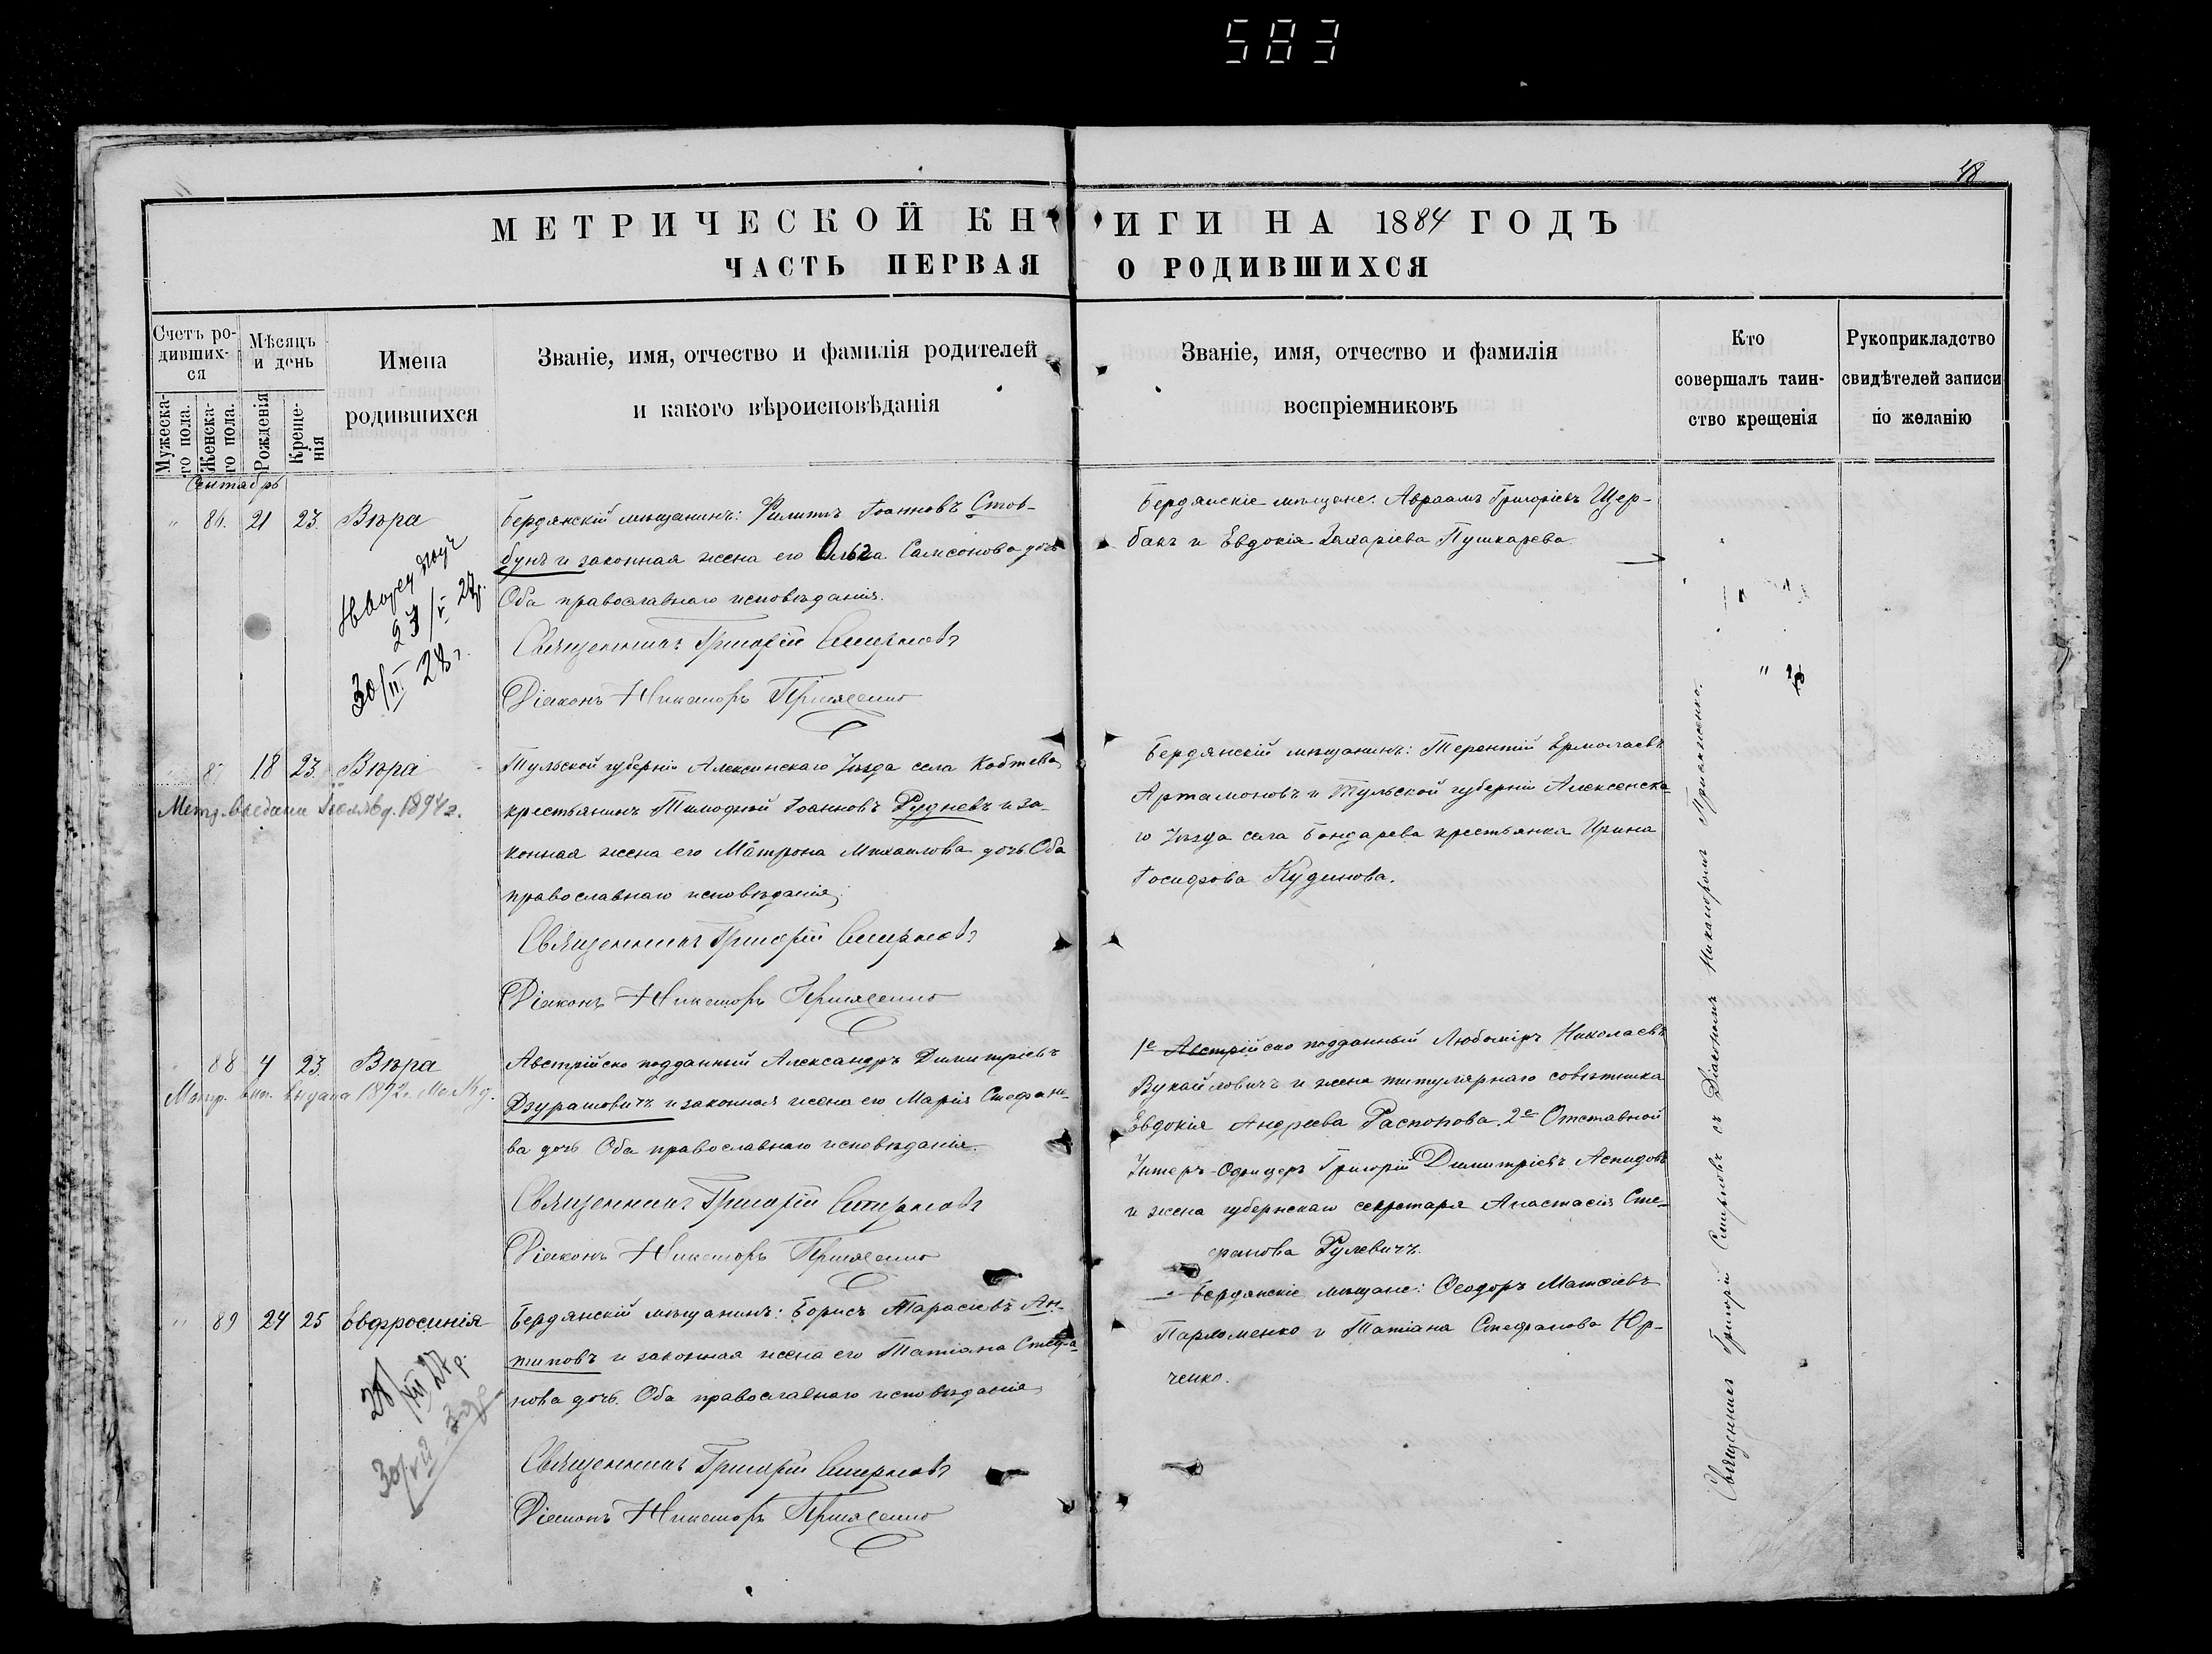 583
48
МЕТРИЧЕСКОЙ КНИГИ НА 1884 ГОДЪ
ЧАСТЬ ПЕРВАЯ О РОДИВШИХСЯ
Счетъ ро-
дивших-
ся
Мужеска-
го пола.
Женска-
го пола.
Мѣсяцъ
и день
Рожденія
Креще-
нія
Имена
родившихся
Званіе, имя, отчество и фамилія родителей
и какого вѣроисповѣданія
Званіе, имя, отчество и фамилія
воспріемниковъ
Кто
совершалъ таин-
ство крещенія
Рукоприкладство
свидѣтелей записи
по желанію
Сентябрь
" 86. 21 23. Вѣра
Бердянскій мѣщанинъ: Филиппъ Іоанновъ Стов-
бунъ и законная жена его Ольга Самсонова дочь
Оба православнаго исповѣданія.
Священникъ Григорій Смирновъ
Діаконъ Никаноръ Пришаенко
Бердянскіе мѣщане: Авраамъ Григоріевъ Щер-
бакъ и Евдокія Захаріева Пушкарева.
23/V 27р.
30/II. 28г.
87 18 23. Вѣра
1894г.
Тульской губерніи Алексинскаго Уѣзда села Коптева
крестьянинъ Тимофей Іоанновъ Рудневъ и за-
конная жена его Матрона Михаилова дочь Оба
православнаго исповѣданія.
Священникъ Григорій Смирновъ
Діаконъ Никаноръ
Бердянскій мѣщанинъ: Терентій Ермолаевъ
Артамоновъ и Тульской губерніи Алексинска-
го Уѣзда села Бондарева крестьянка Ирина
Іосифова Кудинова.
88 4 23. Вѣра
Метр. выдана
Австрійско подданный Александръ Димитріевъ
Дзурашовичъ и законная жена его Марія Стефано-
ва дочь Оба православнаго исповѣданія.
Священникъ Григорій Смирновъ
Діаконъ Никаноръ
1е Австрійско подданный Любоміръ Николаевъ
Вукайловичъ и жена титулярнаго совѣтника
Евдокія Андреева Распопова. 2е Отставной
Унтеръ-Офицеръ Григорій Димитріевъ Аспидовъ
и жена губернскаго секретаря Анастасія Сте-
фанова Рулевичъ.
" 89 24 25 Евфросинія
28/XII 27р.
Бердянскій мѣщанинъ: Борисъ Тарасіевъ Ан-
типовъ и законная жена его Татіана Стефа-
нова дочь. Оба православнаго исповѣданія
Священникъ Григорій Смирновъ
Діаконъ Никаноръ
Бердянскіе мѣщане: Ѳеодоръ Матѳіевъ
Пархоменко и Татіана Стефанова Юр-
ченко.
Священникъ Григорій Смирновъ съ Діакономъ Никаноромъ